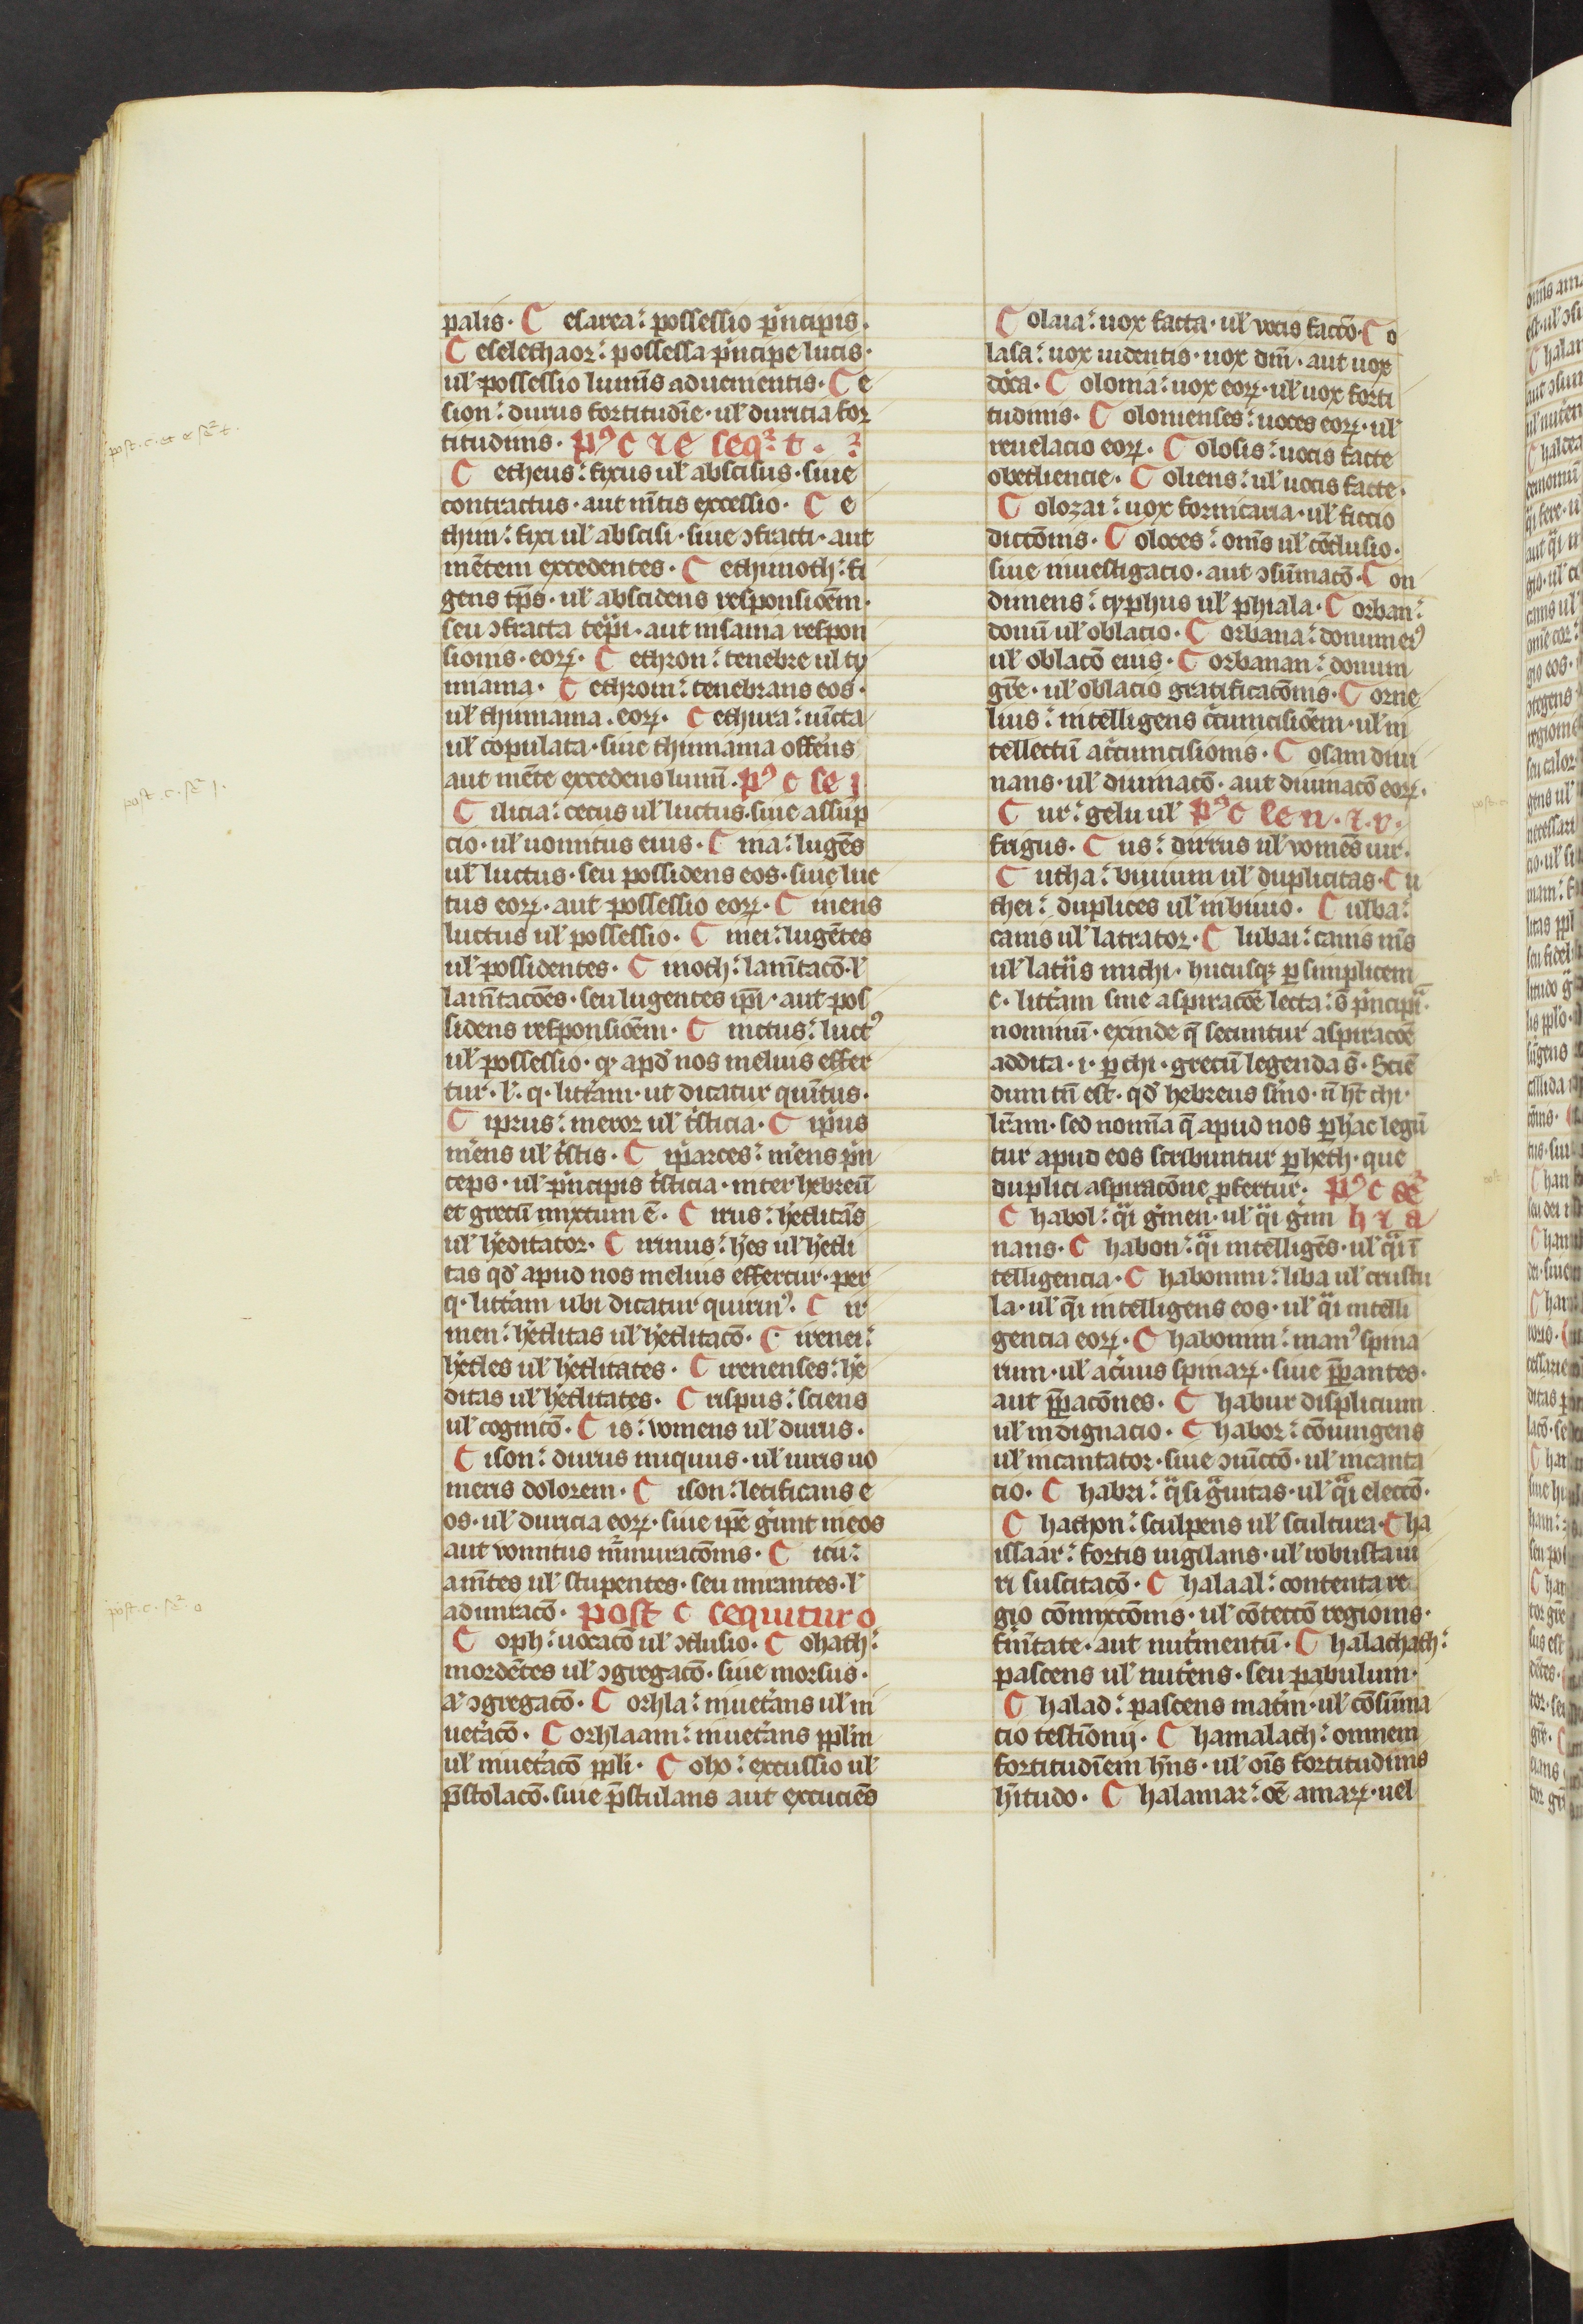 palis. Cesarea: possessio p'ncipis.
Ceselethaor: possessa p'ncipe lucis.
ul' possessio lumīs aduenientis. Ce
sion: durus fortitudīe. ul' duricia for
titudinis. p' c ⁊ e seq² t.
post. c. et e se² t.
Cetheus: fixus ul' abscisus. siue
contractus. aut mītis excessio. Ce
thim: fixi ul' abscisi. siue ↄfracti. aut
mētem excedentes. Cethimoth: fi
gens tp̄s. ul' abscidens responsiōem.
seu ↄfracta tēpi. aut insania respon
sionis. eoꝝ. Cethron: tenebre ul' ty
miama. Cethrom: tenebrans eos.
ul' thimiama. eoꝝ. Cethura: iūcta
ul' copulata. siue thimiama offēns
aut mēte excedens lumī. p' c se i
post. c. se² i.
Cilicia: cecus ul' luctus. siue assup
cio. ul' uomitus eius. Cina: lugēs
ul' luctus. seu possidens eos. siue luc
tus eoꝝ. aut possessio eoꝝ. Cinens
luctus ul' possessio. Cinei: lugētes
ul' possidentes. Cinoth: lamītacō. l'
lamītacōes. seu lugentes ip̄i. aut pos
sidens responsiōem. Cinctus: luct'
ul' possessio. qꝫ apd' nos melius effer
tur. l'. q. litt'am. ut dicatur quītus.
Ciprus: meror ul' t'sticia. Ciprius
m'ens ul' t'stis. Ciparces: m'ens p'n
ceps. ul' p'ncipis t'sticia. inter hebreū
et grecū mixtum ē. Cirus: h'editās
ul' h'editator. Cirinus: h'es ul' h'edi
tas qd' apud nos melius effertur. per
q. litt'am ubi dicatur quirin'. Cir
men: h'editas ul' h'editacō. Cirenei:
h'edes ul' h'editates. Cirenenses: h'e
ditas ul' h'editates. Crispus: sciens
ul' cognicō. Cis: vomens ul' durus.
Cison: durus iniquus. ul' iuris uo
meris dolorem. Cison: letificans e
os. ul' duricia eoꝝ. siue ip̄e g'unt in eos
aut vomitus m'muracōnis. Cicu:
am̄tes ul' stupentes. seu mirantes. l'
admiracō. post c sequitur o
post. c. se². o
Coph: uocacō ul' ↄclusio. Cohath:
mordētes ul' ↄgregacō. siue morsus.
a' ↄgregacō. Corhla: inuet'ans ul' in
uet'acō. Corhlaam: inuet'ans pp̄lm
ul' inuet'acō pp̄li. Coho: excussio ul'
p̄stolacō. siue p̄stulans aut excuciēs
Colaia: uox facta. ul' vocis faccō. Co
lasa: uox uidentis. uox dn̄i. aut uox
dōca. Coloma: uox eoꝝ. ul' uox forti
tudinis. Colonienses: uoces eoꝝ. ul'
reuelacio eoꝝ. Colosis: uocis facte
obediencie. Coliens: ul' uocis facte.
Colozai: uox fornicaria. ul' ficcio
dictōnis. Coloces: om̄s ul' cōclusio.
siue inuestigacio. aut ↄsūmacō. Con
dimens: cyphus ul' phiala. Corban:
donū ul' oblacio. Corbana: donum ei'
ul' oblacō eius. Corbanan: donum
gr̄e. ul' oblacio gratificacōnis. Corne
lius: intelligens c'cumcisiōem. ul' in
tellectū c'cumcisionis. Cosam diui
nans. ul' diuinacō. aut diuinacō eoꝝ.
Cur: gelu ul' p' c se u. ⁊ v.
frigus. Cus: durus ul' vomēs uir.
Cutha: biuium ul' duplicitas. Cu
thei: duplices ul' in biuio. Culba:
canis ul' latrator. Clubai: canis m̄s
ul' lat'is michi. hucusqꝫ ꝑ simplicem
c. litt'am sine aspiracōe lecta: s̄ p'ncipi
nominū. exinde q̄ secuntur aspiracōe
addita. i. ꝑ chi. grecū legenda s̄. Sciē
dum tn̄ est. qd' hebreus s'mo. n̄ h̄t chi.
lr̄am. sed nomīa q̄ apud nos ꝑ hāc legū
tur apud eos scribuntur ꝑ heth. que
duplici aspiracōne ꝓfertur. p' c se²
h ⁊ a
Chabol: q̄i g'men. ul' q̄i g'mi
nans. Chabon: q̄i intelligēs. ul' q̄i ī
telligencia. Chabonim: liba ul' crustu
la. ul' q̄i intelligens eos. ul' q̄i intelli
gencia eoꝝ. Chabonim: man' spina
rum. ul' ac'uus spinaꝝ. siue p̄ꝑantes.
aut p̄ꝑacōnes. Chabur displicium
ul' indignacio. Chabor: cōiungens
ul' incantator. siue ↄiūccō. ul' incanta
cio. Chabri: q̄si g̈uitas. ul' q̄i eleccō.
Chathon: sculpens ul' scultura. Cha
issaar: fortis uigilans. ul' robusta ui
ri suscitacō. Chalaal: contenta re
gio cōmixcōnis. ul' cōteccō regionis.
fīnitate. aut nut'mentū. Chalachath:
pascens ul' nut'iens. seu pabulum.
Chalad: pascens mat'm. ul' cōsūma
cio testiōnij. Chamalach: omnem
fortitudīem h'ns. ul' oīs fortitudinis
h'itudo. Chalamar: oē amaꝝ. uel